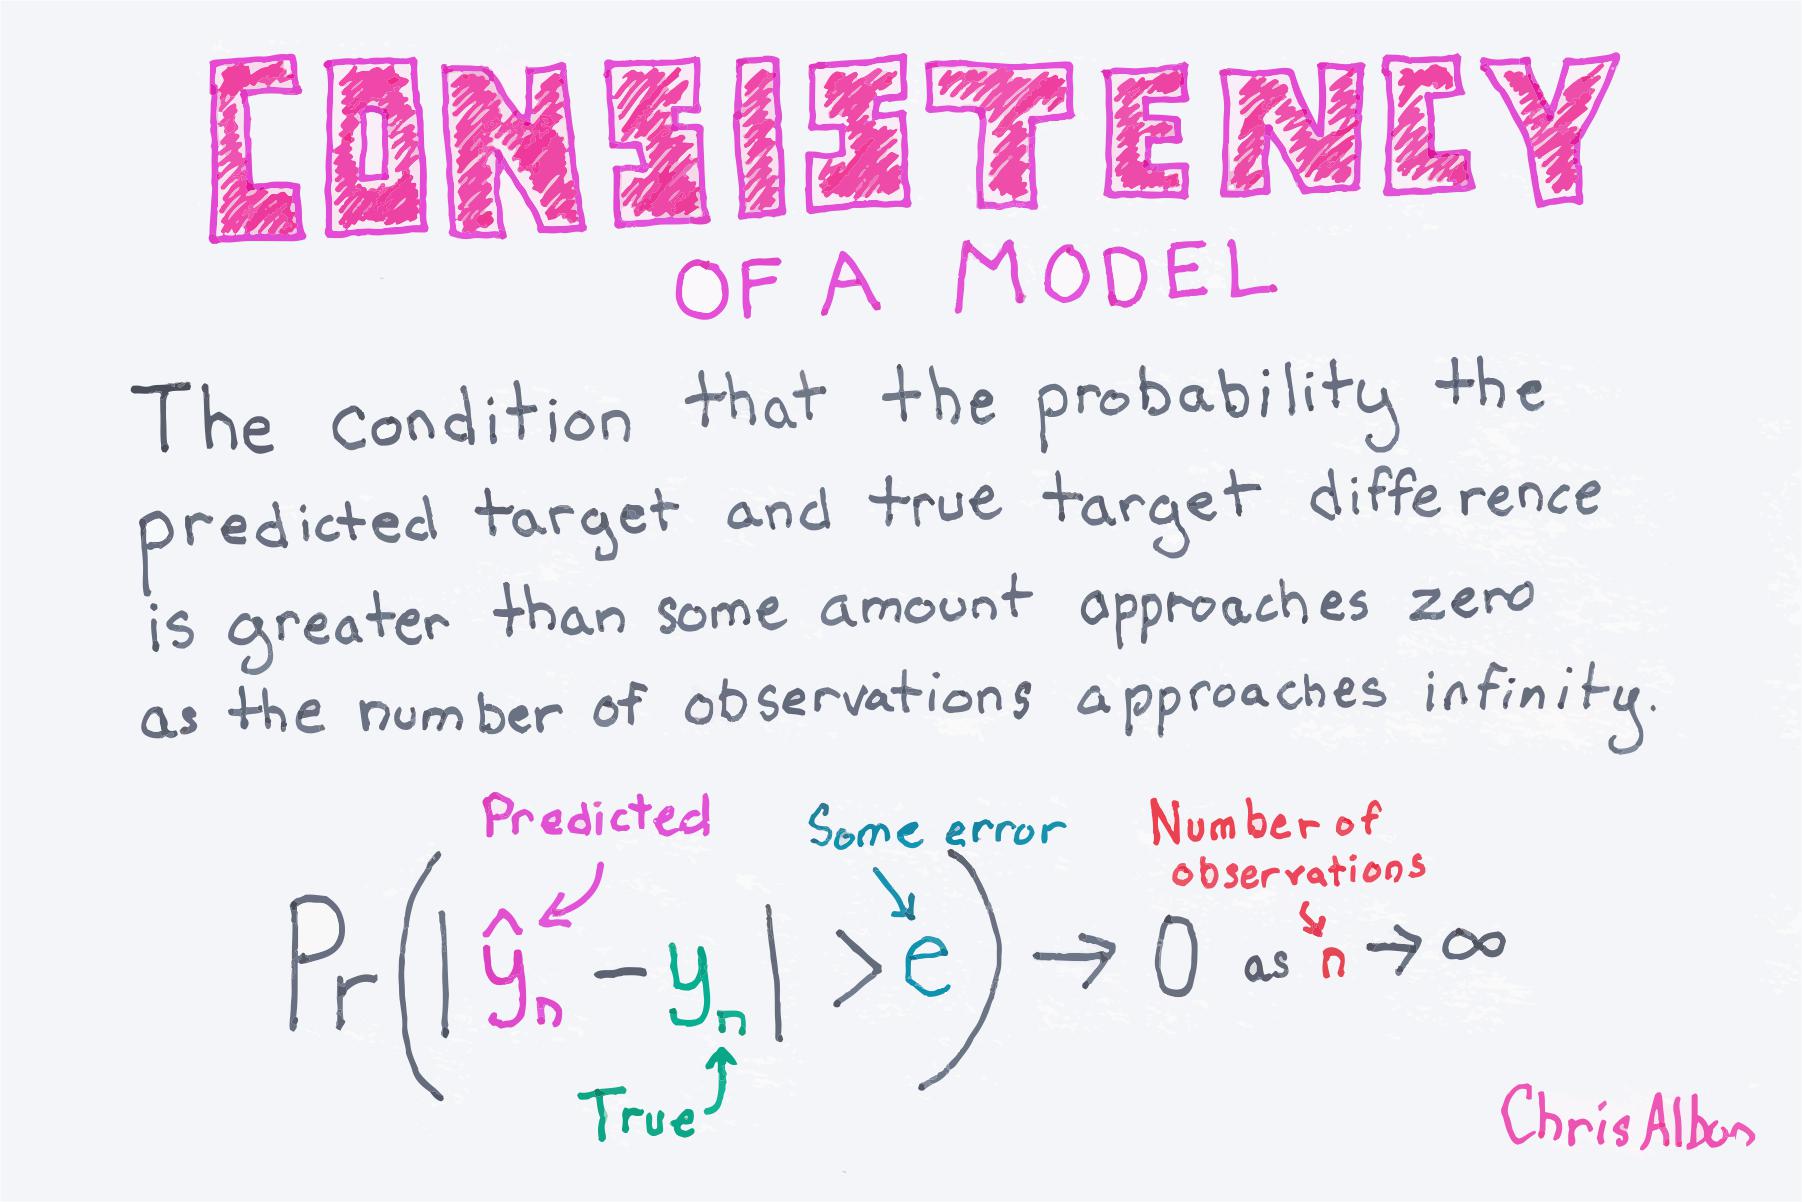 CONSISTENCY
OF A MODEL
The condition that the probability the
predicted target and true target difference
is greater than some amount approaches zero
as the number of observations approaches infinity.
Predicted
Some error
Number of
observations
Pr(|ŷn − yn| > e) → 0 as n → ∞
True
Chris Albon